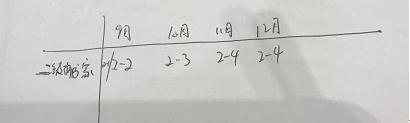 9月 10月 11月 12月
二级 2-2 2-3 2-4 2-4